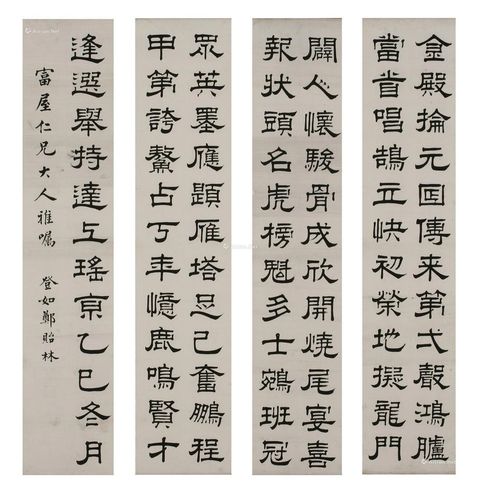 金殿掄元回傳来第弌聲鴻臚
當首唱鵠立快初榮地擬龍門
闢人懷駿骨成欣開燒尾宴喜
報状頭名虎榜魁多士鵷班冠
眾英墨應題雁塔忌己奮鵬程
甲第誇鰲占丁年憶鹿鳴賢才
逢選舉持達上瑤京乙巳冬月
富屋仁兄大人雅嘱 登如鄭貽林